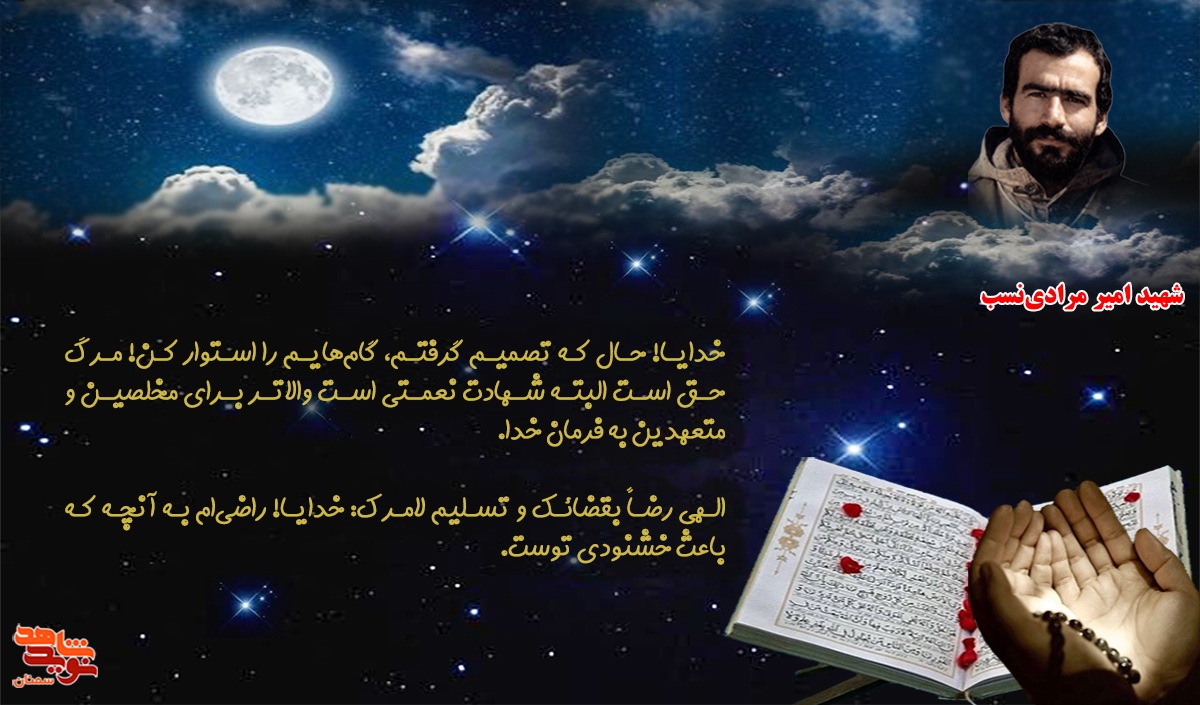 شهید امیر مرادی‌نسب
خدایا! حال که تصمیم گرفتم، گام‌هایم را استوار کن! مرگ
حق است البته شهادت نعمتی است والاتر برای مخلصین و
متعهدین به فرمان خدا.
الهی رضاً بقضائک و تسلیم لامرک: خدایا! راضی‌ام به آنچه که
باعث خشنودی توست.
نوید شاهد
سمنان